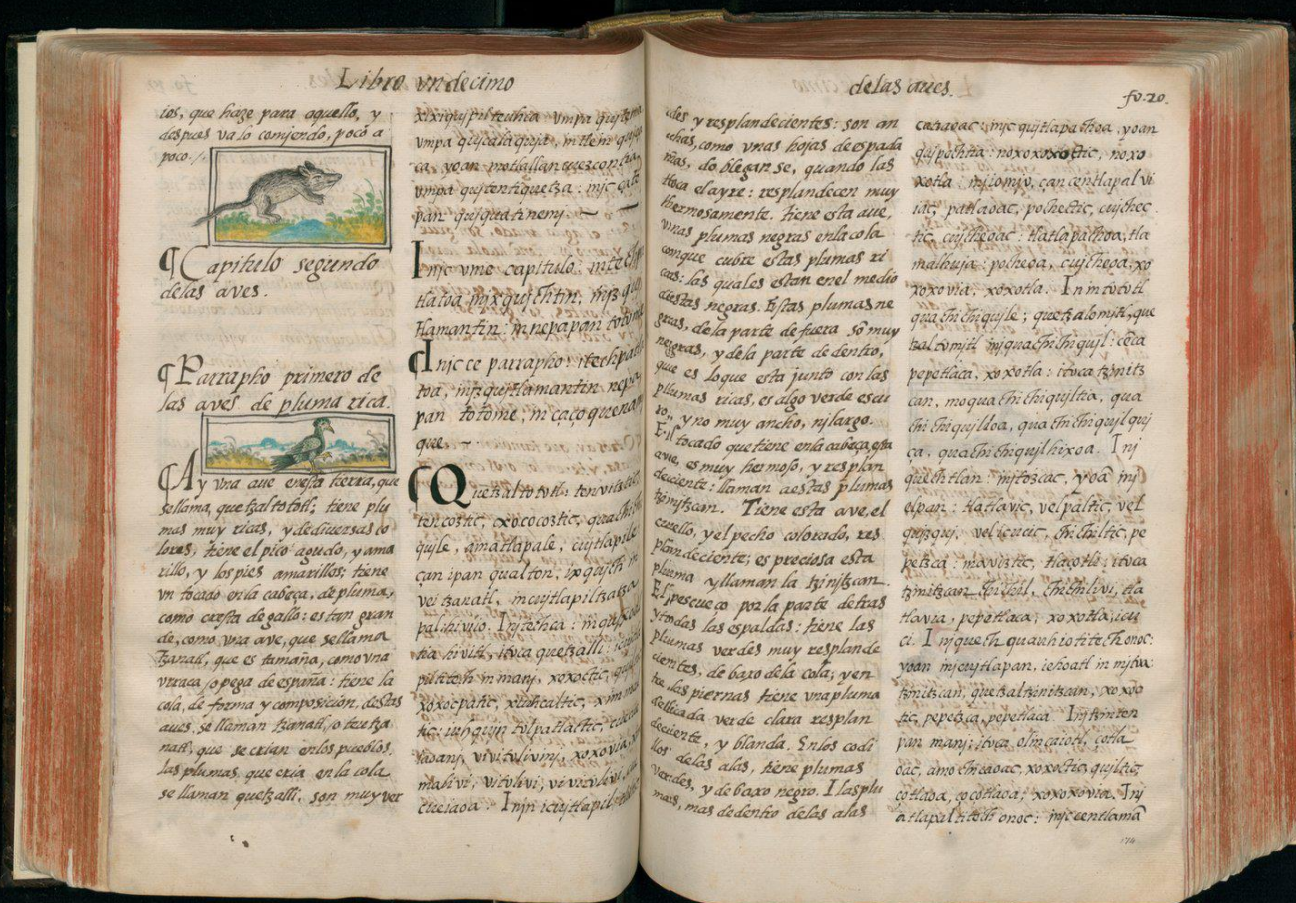 Libro vndecimo
ios, que haze para aquello, y
despues valo comiendo, poco a
poco./.
¶ Capitulo segundo
delas aves.
¶ Parrapho primero de
las aves de pluma rica.
¶ Ay vna aue enesta tierra, que
sellama, quetzaltototl: tiene plu
mas muy ricas, y de diuersas co
lores: tiene el pico agudo, y ama
rillo, y los pies amarillos: tiene
vn tocado en la cabeça, de pluma,
como cresta de gallo: es tan gran
de, como vna ave, que sellama
tzanatl, que es tamaña, como vna
vrraca, o pega de españa: tiene la
cola, de forma y composición, destas
aues, se llaman tzanatl, o teutza
natl, que se crian enlos pueblos.
las plumas, que cria en la cola
se llaman quetzalli, son muy ver
vmpa qujcalaquja, intlem
ca, yoan motlallantecuezcontia,
vmpa qujtentiquetza: injc
pan qujquatinemj.
Injc vme capitulo:
tlatoa
tlamantin: innepapan totome
¶ Injc ce parrapho: itechpa
toa,
pan totome, in çaço quenamj
que.
¶ Quetzaltototl: tenvitztic,
tencoztic, xococoztic, quachichi
quile, amatlapale, cujtlapile
çan ipan qualton, ixqujch in
vei tzanatl, incujtlapil
palihivio. Intechca:
hivitl, itoca quetzalli:
piltitoch in manj, xoxoctic,
xoxocpatic, xiuhcaltic,
tic: iuhqujn tolpatlactic,
vivitolivinj, xoxovia,
malivi, vitolivi, vivitolivi,
cueiaoa. Injn icujtlapil
delas aues.
fo. 20.
des y resplandecientes: son an
chas, como vnas hojas de espada
ñas, doblegan se, quando las
toca elayre: resplandecen muy
hermosamente. tiene esta aue,
vnas plumas negras enla cola
conque cubre estas plumas ri
cas: las quales estan en el medio
destas negras. Estas plumas ne
gras, de la parte de fuera sō muy
negras, y dela parte de dentro,
que es lo que esta junto con las
plumas ricas, es algo verde escu
ro, y no muy ancho, nj largo.
El tocado que tiene enla cabeça, esta
aue, es muy hermoso, y resplan
deciente: llaman a estas plumas
tzinitzcan. Tiene esta ave, el
cuello, y el pecho colorado, res
plandeciente; es preciosa esta
pluma y llaman la tzinitzcan.
El pescueço por la parte de tras
y todas las espaldas: tiene las
plumas verdes muy resplande
cientes, de baxo dela cola; y en
tre las piernas tiene vna pluma
delicada verde clara resplan
deciente, y blanda. Enlos codi
llos delas alas, tiene plumas
verdes, y de baxo negro. I las plu
mas, mas de dentro delas alas
injc qujtlapachoa, yoan
qujpochina: noxoxoxoctic, noxo
xotla: injomjv, çan centlapal vi
iac, patlaoac, pochectic, cujchec
tic, cujcheoac: tlatlapalhoa, tla
malhuja: pocheoa, cujcheoa, xo
xoxovia, xoxotla. In in tototl
quachichiquile; quetzalomjtl, que
tzaltomjtl injquachichiquil: cēca
pepetlaca, xoxotla: itoca tzinitz
can, moquachichiquiltia, qua
chichiquiloa, quachichiquilqui
ça, quachichiquilhixoa. Inj
quechtlan: injtozcac, yoā inj
elpan: tlatlavic, velpaltic, vel
velicucic, chichiltic, pe
petzca: maviztic, tlaçotli: itoca
tzinitzcan. Chichil, chichilivi, tla
tlavia, pepetlaca, xoxotla, icu
ci. Injquech quauhiotitech onoc:
yoan injcujtlapan, iehoatl in mjtoa:
tzinitzcan, quetzaltzinitzcan, xoxoo
tic, pepetzca, pepetlaca. Injtzinten
pan manj: itoca, olincaiotl, çotla
oac, amo chicaoac, xoxoctic, quiltic,
cotlaoa, cocotlaoa, xoxoxovia. Inj
atlapaltitech onoc: injc centlamā
174